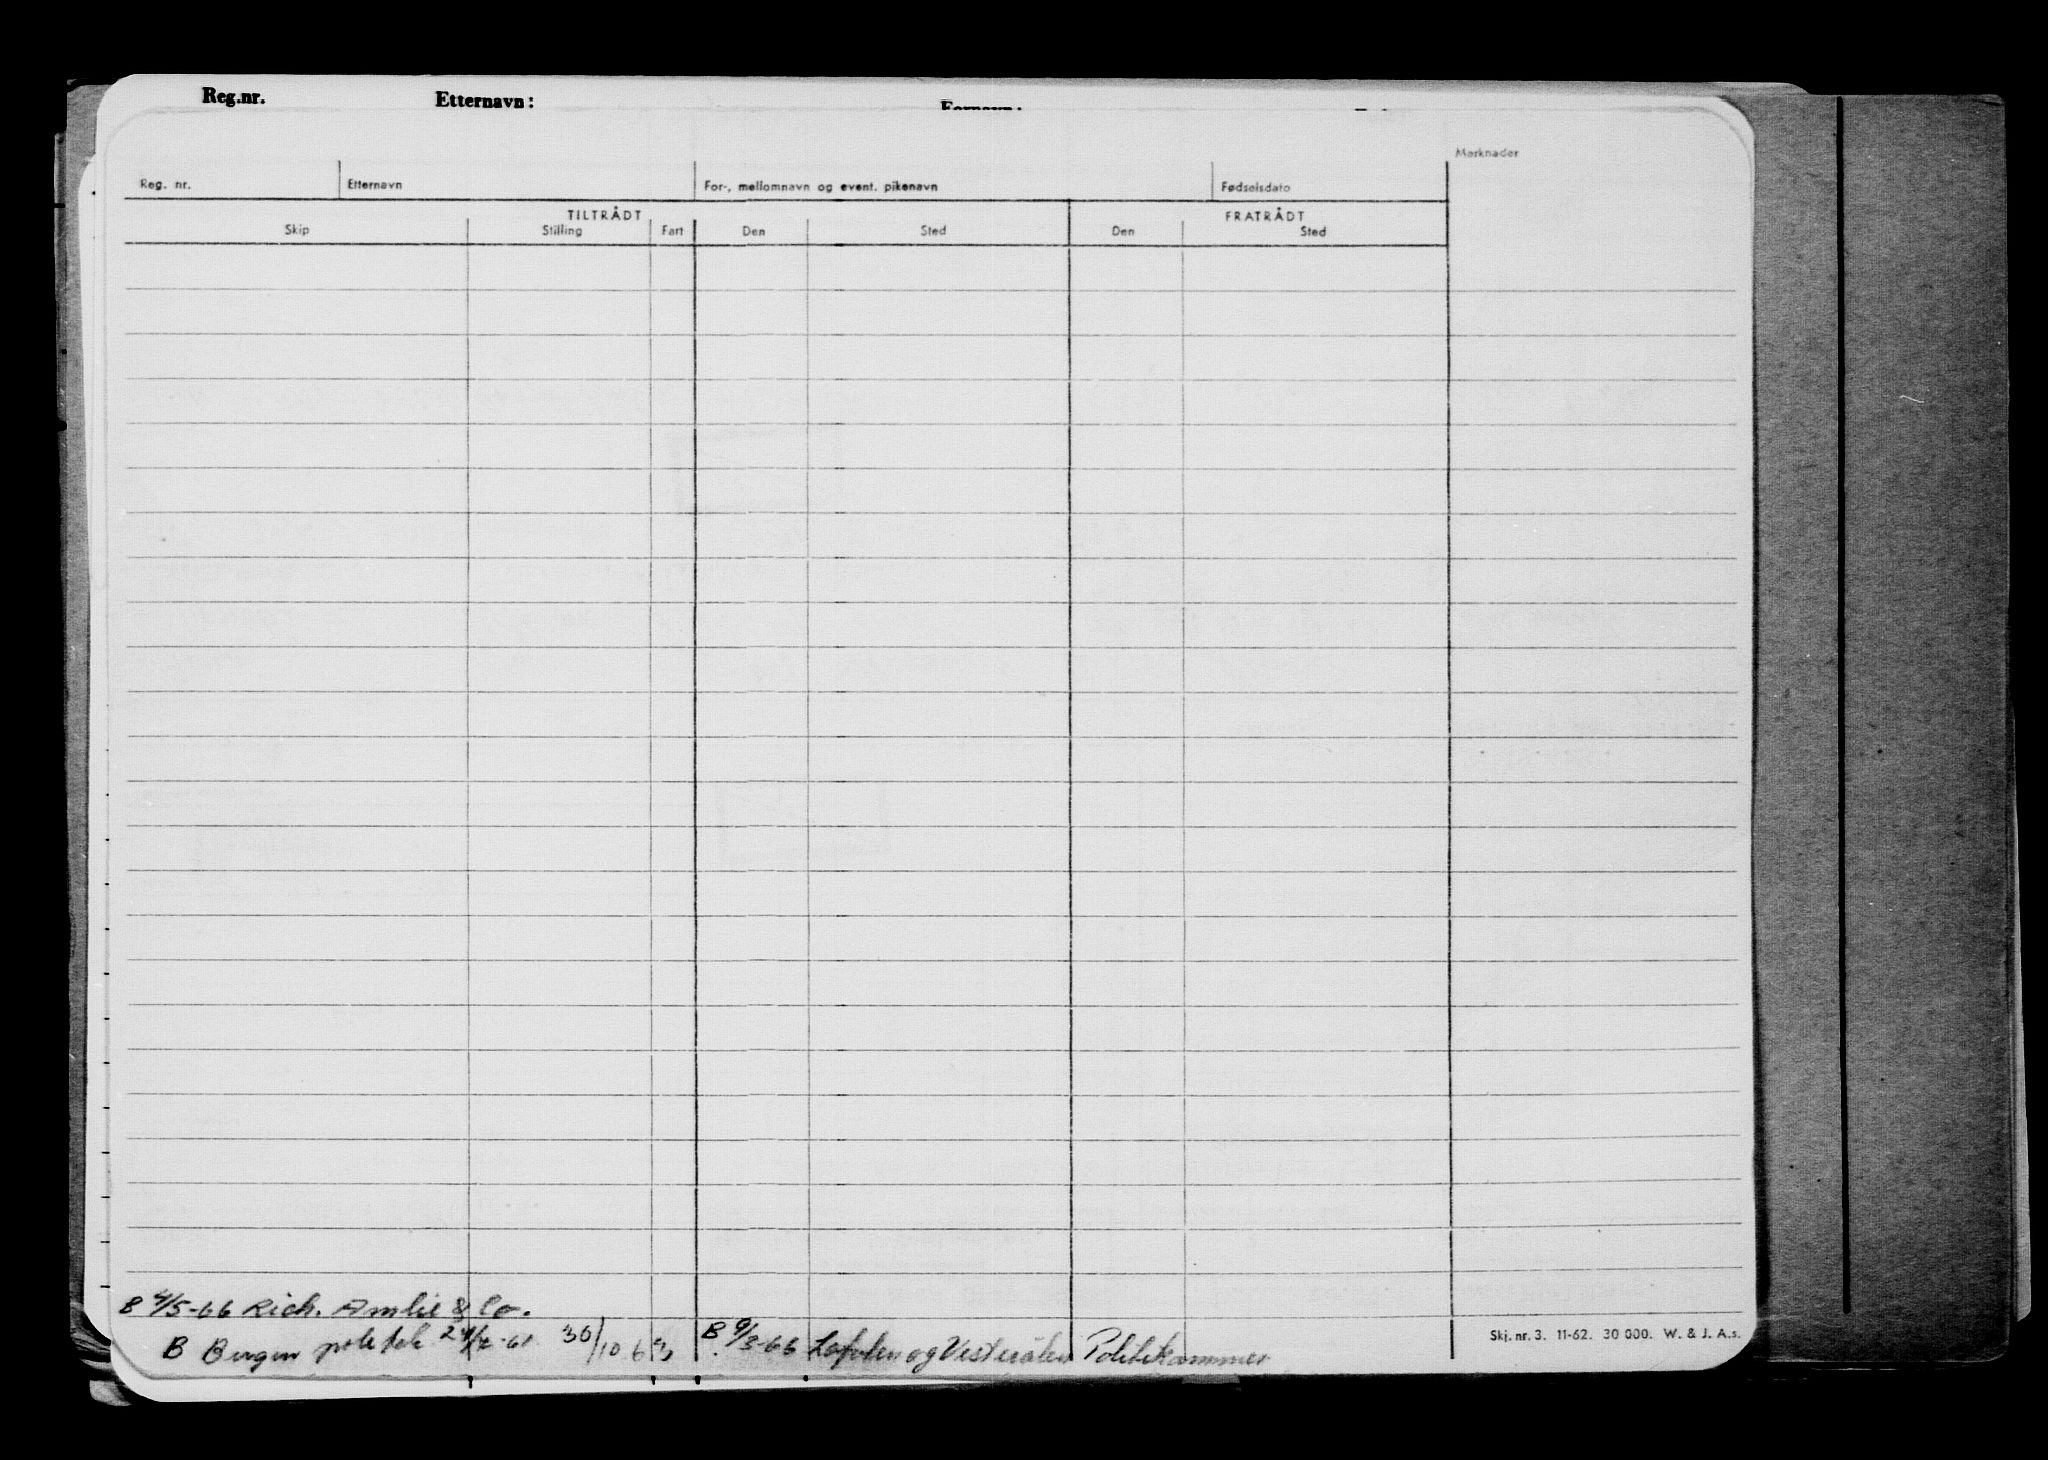 Reg.nr. Etternavn: Fornavn:
Merknader
Reg. nr. Etternavn For-, mellomnavn og event. pikenavn Fødselsdato
TILTRÅDT FRATRÅDT
Skip Stilling Fart Den Sted Den Sted
B 4/5-66 Rich. Amlie & Co.
B Bergen 30/10 63 B 9/3-66 Lofoten og Vesterålen Politikammer
Skj. nr. 3. 11-62. 30 000. W. & J. A.s.